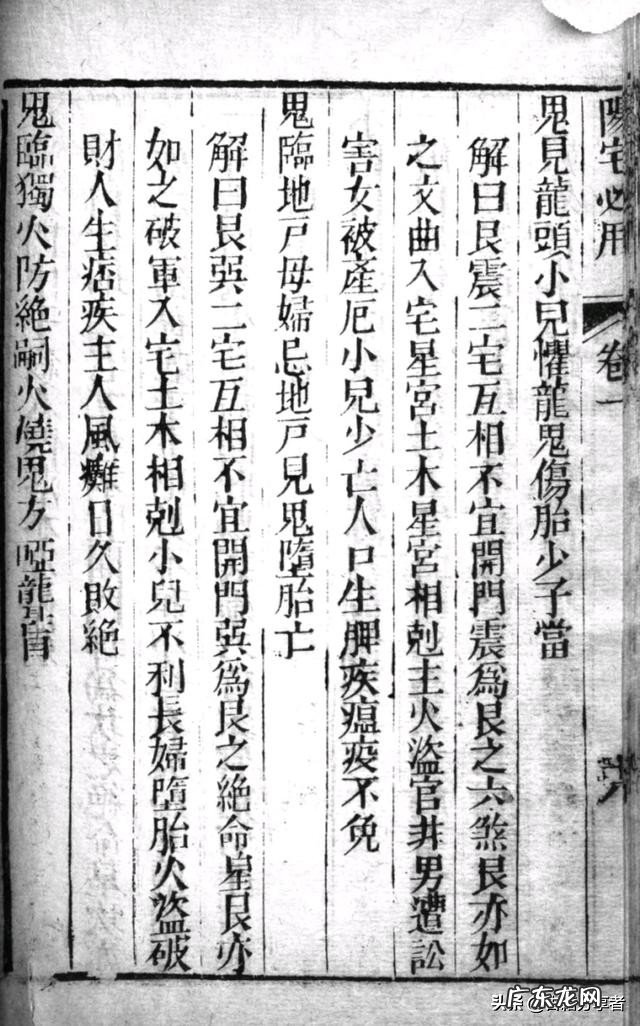 陽宅必用 卷一
鬼見龍頭小兒懼龍鬼傷胎少子當
解曰艮震二宅互相不宜開門震爲艮之六煞艮亦如
之文曲入宅星宮土木星宮相剋主火盜官非男遭訟
害女被產厄小兒少亡人口生脾疾瘟疫不免
鬼臨地戸母婦忌地戸見鬼墮胎亡
解曰艮巽二宅互相不宜開門巽爲艮之絶命星艮亦
如之破軍入宅土木相剋小兒不利長婦墮胎火盜破
財人生痞疾主人風癱日久敗絶
鬼臨獨火防絶嗣火燒鬼方啞聾盲
广东龙网